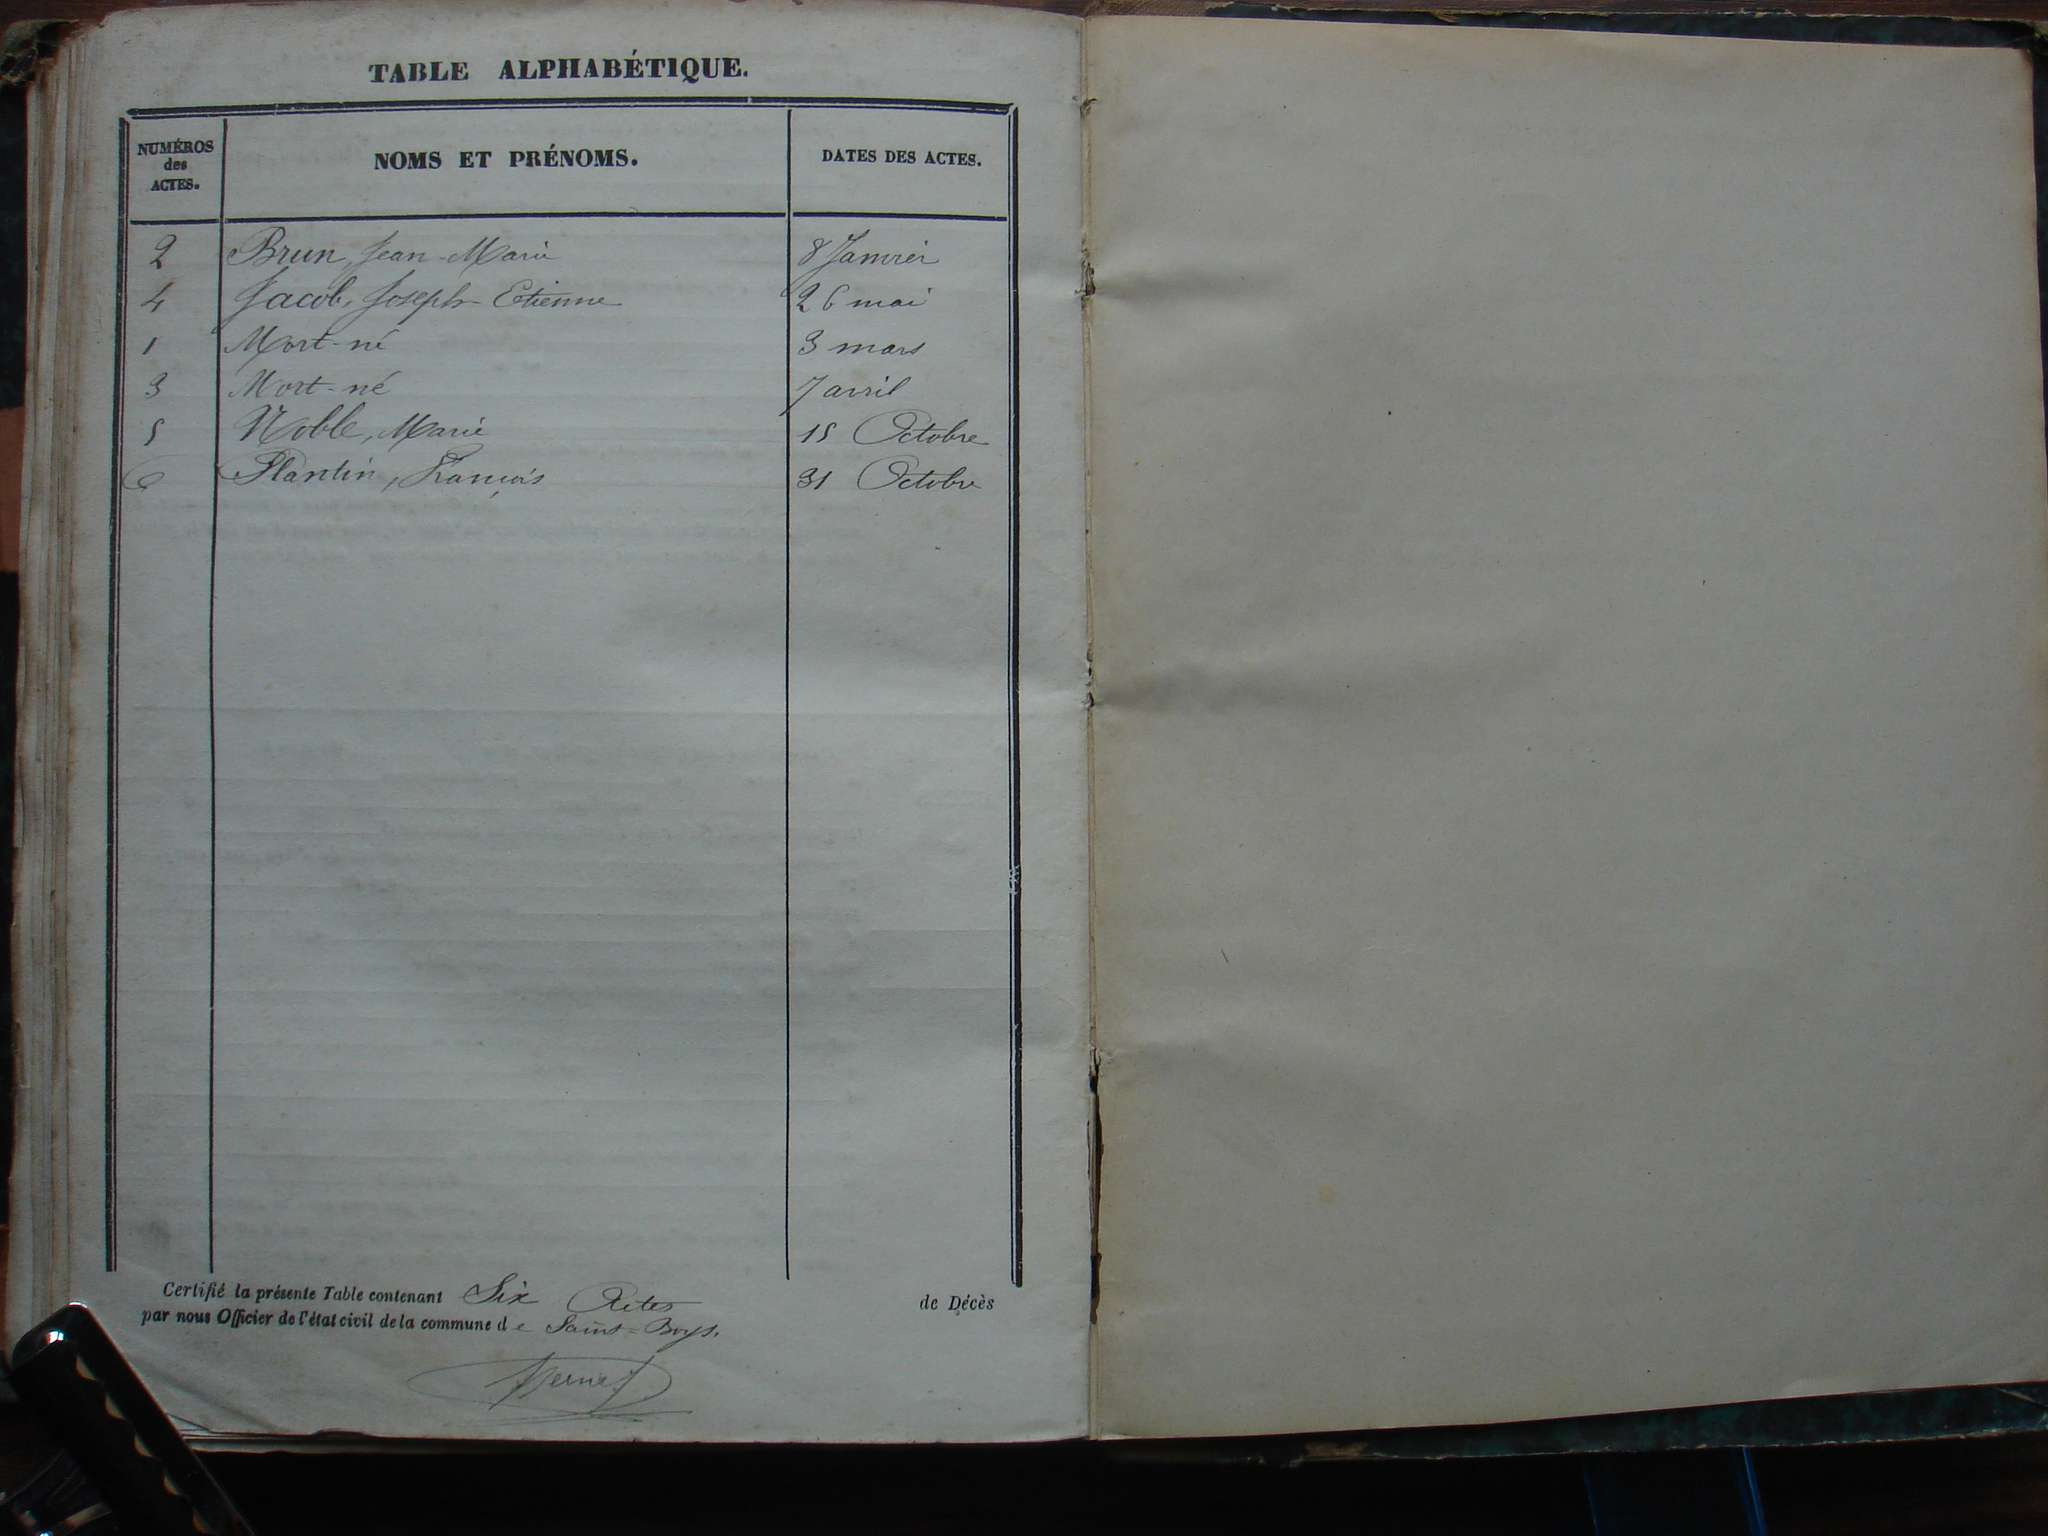 TABLE ALPHABÉTIQUE.
NUMÉROS des ACTES. NOMS ET PRÉNOMS. DATES DES ACTES.
2 Brun, Jean-Marie 8 Janvier
4 Jacob, Joseph-Etienne 26 mai
1 Mort-né 3 mars
3 Mort-né 7 avril
5 Noble, Marie 15 Octobre
6 Plantin, François 31 Octobre
Certifié la présente Table contenant Six Actes de Décès
par nous Officier de l'état civil de la commune de Saint-Boys.